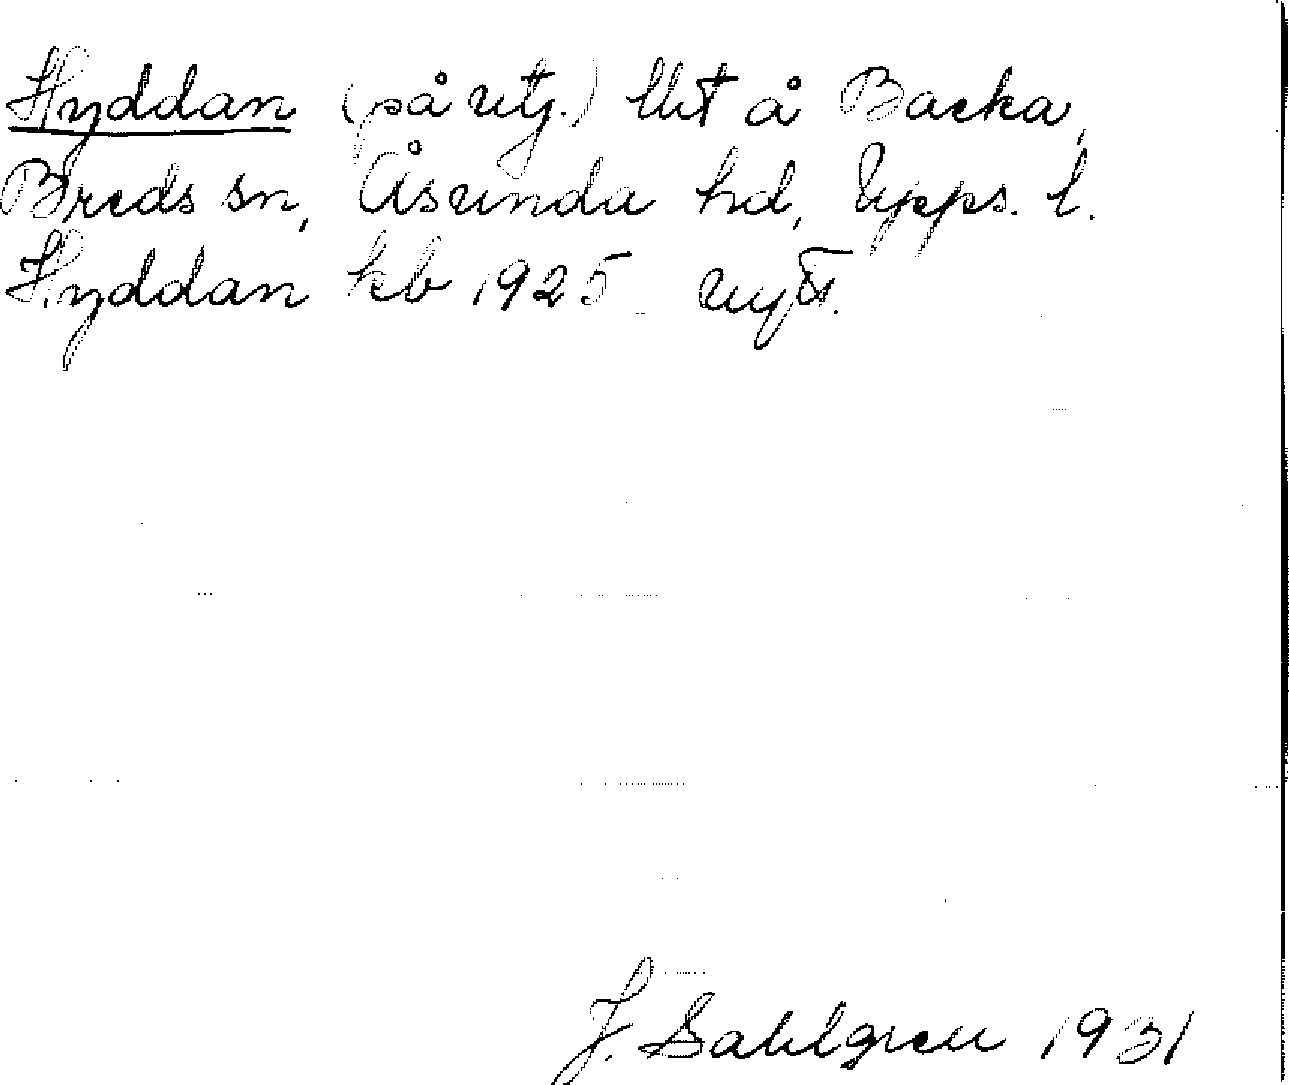 Hyddan (på utj.) lht å Backa,
Breds sn, Åsunda hd, Upps. l.
Hyddan kb 1925
J. Sahlgren 1931